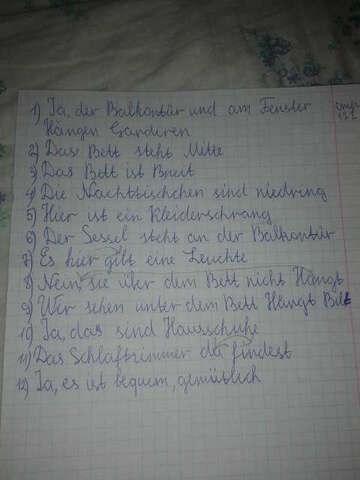 1) Ja, der Balkontür und am Fenster
Hängen Gardinen
2) Das Bett steht Mitte
3) Das Bett ist Breit
4) Die Nachttischchen sind niedring
5) Hier ist ein Kleiderschrang
6) Der Sessel steht an der Balkontür
7) Es hier gilt eine Leuchte
8) Nein, sie über dem Bett nicht Hängt
9) Wir sehen unter dem Bett Hängt Bild
10) Ja, das sind Hausschuhe
11) Das Schlaftzimmer du findest
12) Ja, es ist bequem, gemütlich